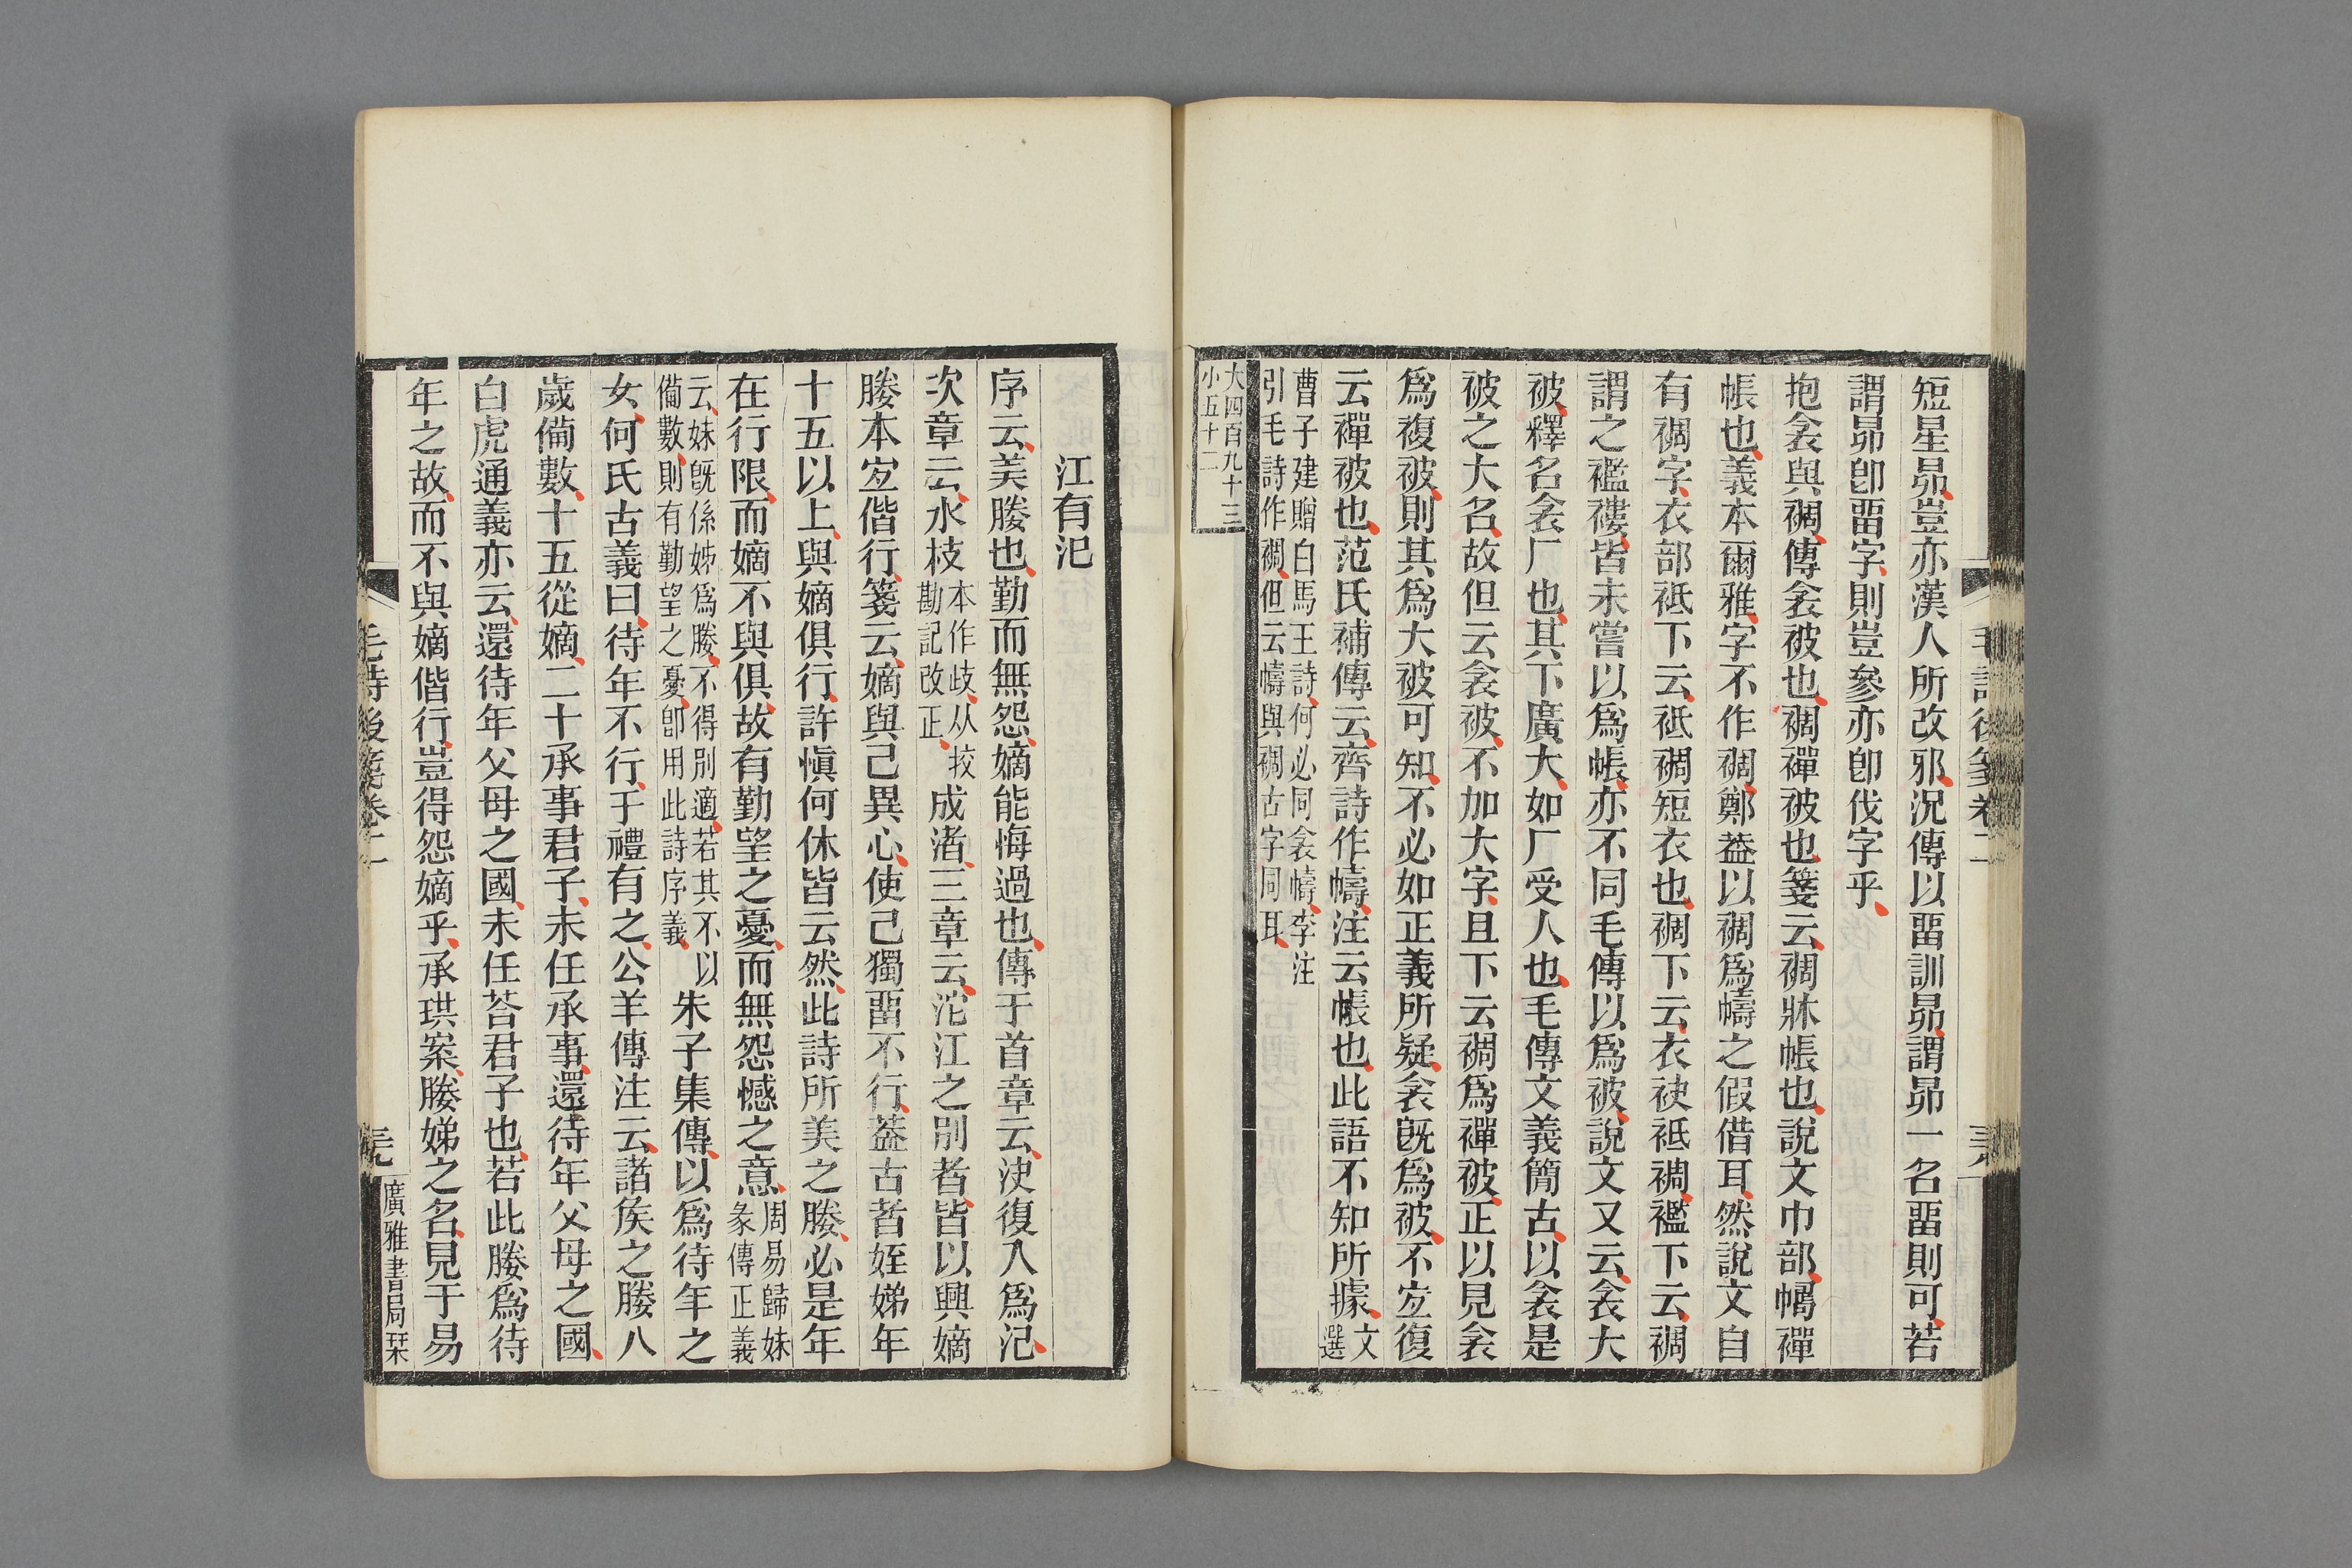 短星昴豈亦漢人所改邪況傳以畱訓昴謂昴一名畱則可若
謂昴卽畱字則豈參亦卽伐字乎
抱衾與裯傳衾被也裯襌被也箋云裯牀帳也說文巾部幬襌
帳也義本爾雅字不作裯鄭葢以裯爲幬之假借耳然說文自
有裯字衣部袛下云袛裯短衣也裯下云衣袂袛裯襤下云裯
謂之襤褸皆未嘗以爲帳亦不同毛傳以爲被說文又云衾大
被釋名衾厂也其下廣大如厂受人也毛傳文義簡古以衾是
被之大名故但云衾被不加大字且下云裯爲襌被正以見衾
爲複被則其爲大被可知不必如正義所疑衾旣爲被不宐復
云襌被也范氏補傳云齊詩作幬注云帳也此語不知所據文選
曹子建贈白馬王詩何必同衾幬李注
引毛詩作裯但云幬與裯古字同耳
大四百九十三
小五十二
毛詩後箋卷二
江有汜
序云美媵也勤而無怨嫡能悔過也傳于首章云決復入爲汜
次章云水枝本作歧从挍勘記改正成渚三章云沱江之別者皆以興嫡
媵本宐偕行箋云嫡與己異心使己獨畱不行葢古者姪娣年
十五以上與嫡俱行許愼何休皆云然此詩所美之媵必是年
在行限而嫡不與俱故有勤望之憂而無怨憾之意周易歸妹彖傳正義
云妹旣係姊爲媵不得別適若其不以備數則有勤望之憂卽用此詩序義朱子集傳以爲待年之
女何氏古義曰待年不行于禮有之公羊傳注云諸侯之媵八
歲備數十五從嫡二十承事君子未任承事還待年父母之國
白虎通義亦云還待年父母之國未任荅君子也若此媵爲待
年之故而不與嫡偕行豈得怨嫡乎承珙案媵娣之名見于易
毛詩後箋卷二
廣雅書局栞